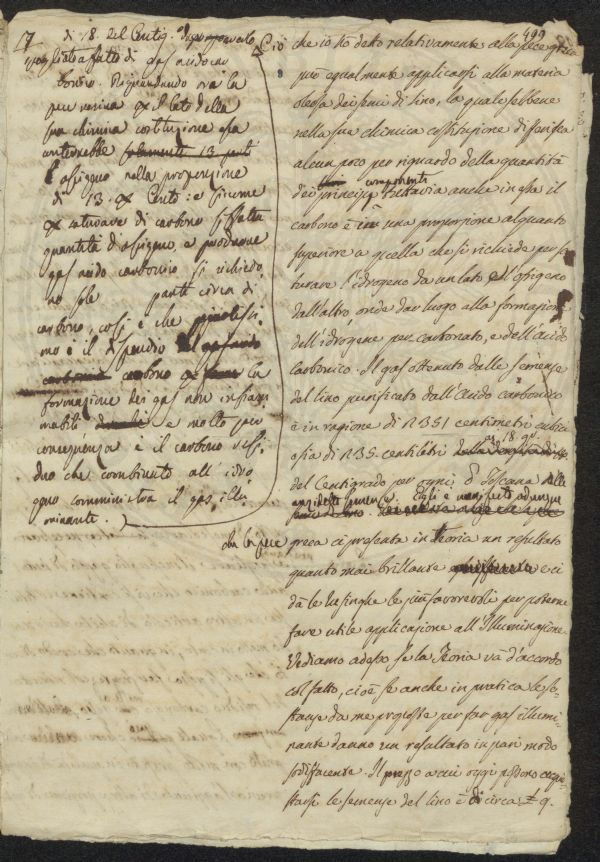 499
17 di 18. del Centig.
spogliato affatto di gas acido car
bonico. Riguardando ora la
pece resina per il lato della
sua chimica costituzione essa
conterrebbe solamente 13 parti
d'ossigeno nella proporzione
di 13. per Cento: e siccome
per saturare di carbonio siffatta
quantità d'ossigeno, e produrre
gas acido carbonico si richiedo
no sole parti circa di
carbonio, così è che
mo è il dispendio del
carbonio per la
formazione dei gas non infiam
mabili e molto per
conseguenza è il carbonio resi
duo che combinato all' idro
geno somministra il gas illu
minante.
Ciò che io hò detto relativamente alla pece greca
può egualmente applicarsi alla materia
oleosa dei semi di lino, la quale sebbene
nella sua chimica costituzione differisca
alcun poco per riguardo della quantità
dei principj componenti tuttavia anche in essa il
carbonio è in una proporzione alquanto
superiore a quella che si richiede per sa
turare l'idrogeno da un lato e l'ossigeno
dall'altro, onde dar luogo alla formazione
dell'idrogene per carbonato, e dell'acido
carbonico. Il gas ottenuto dalle semense
del lino purificato dall'acido carbonico
è in ragione di 2351 centimetri cubici
ossia di 235 centilitri 18. gr.
del Centigrado per ogni d. Toscana delle
anzidette semense. Egli è manifesto adunque
che la pece greca ci presenta in teoria un resultato
quanto mai brillante e ci
dà le lusinghe le più favorevoli per poterne
fare utile applicazione all'Illuminazione.
Vediamo adesso se la Teoria và d'accordo
col fatto, cioè se anche in pratica le so-
stanze da me proposte per far gas illumi-
nante danno un resultato in pari modo
sodisfacente. Il prezzo a cui oggi possono acqui-
starsi le semense del lino è di circa £ 9.